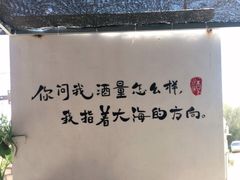 你问我酒量怎么样，
我指着大海的方向。